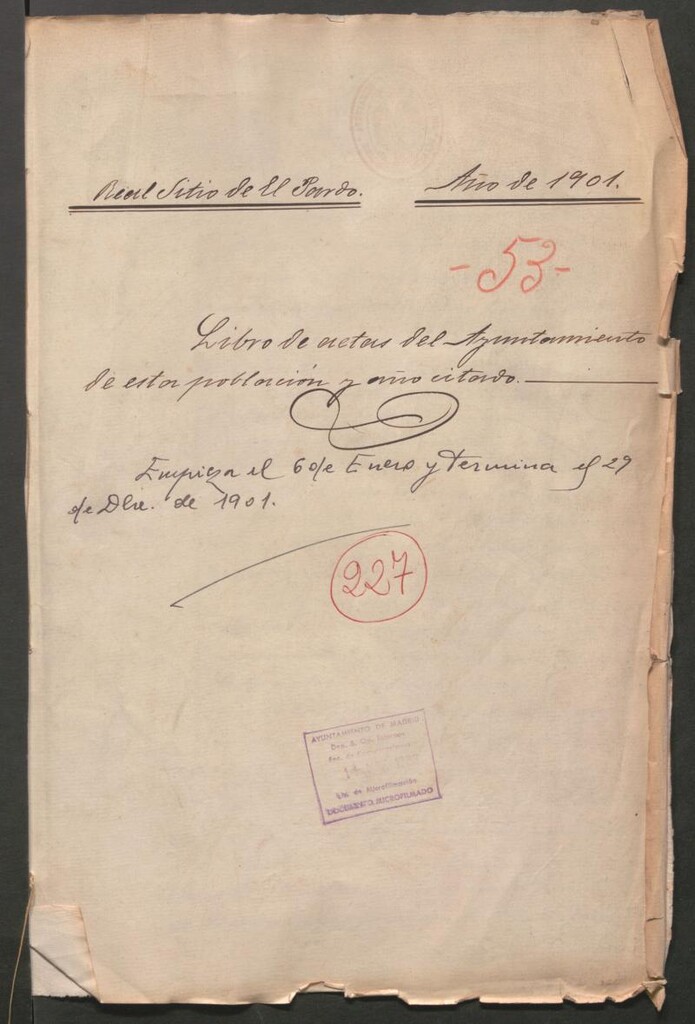 Real Sitio de El Pardo. Año de 1901.
- 53 -
Libro de actas del Ayuntamiento
de esta población y año citado.
Empieza el 6 de Enero y termina el 29
de Dbre. de 1901.
227
AYUNTAMIENTO DE MADRID
de Microfilmación
DOCUMENTO MICROFILMADO